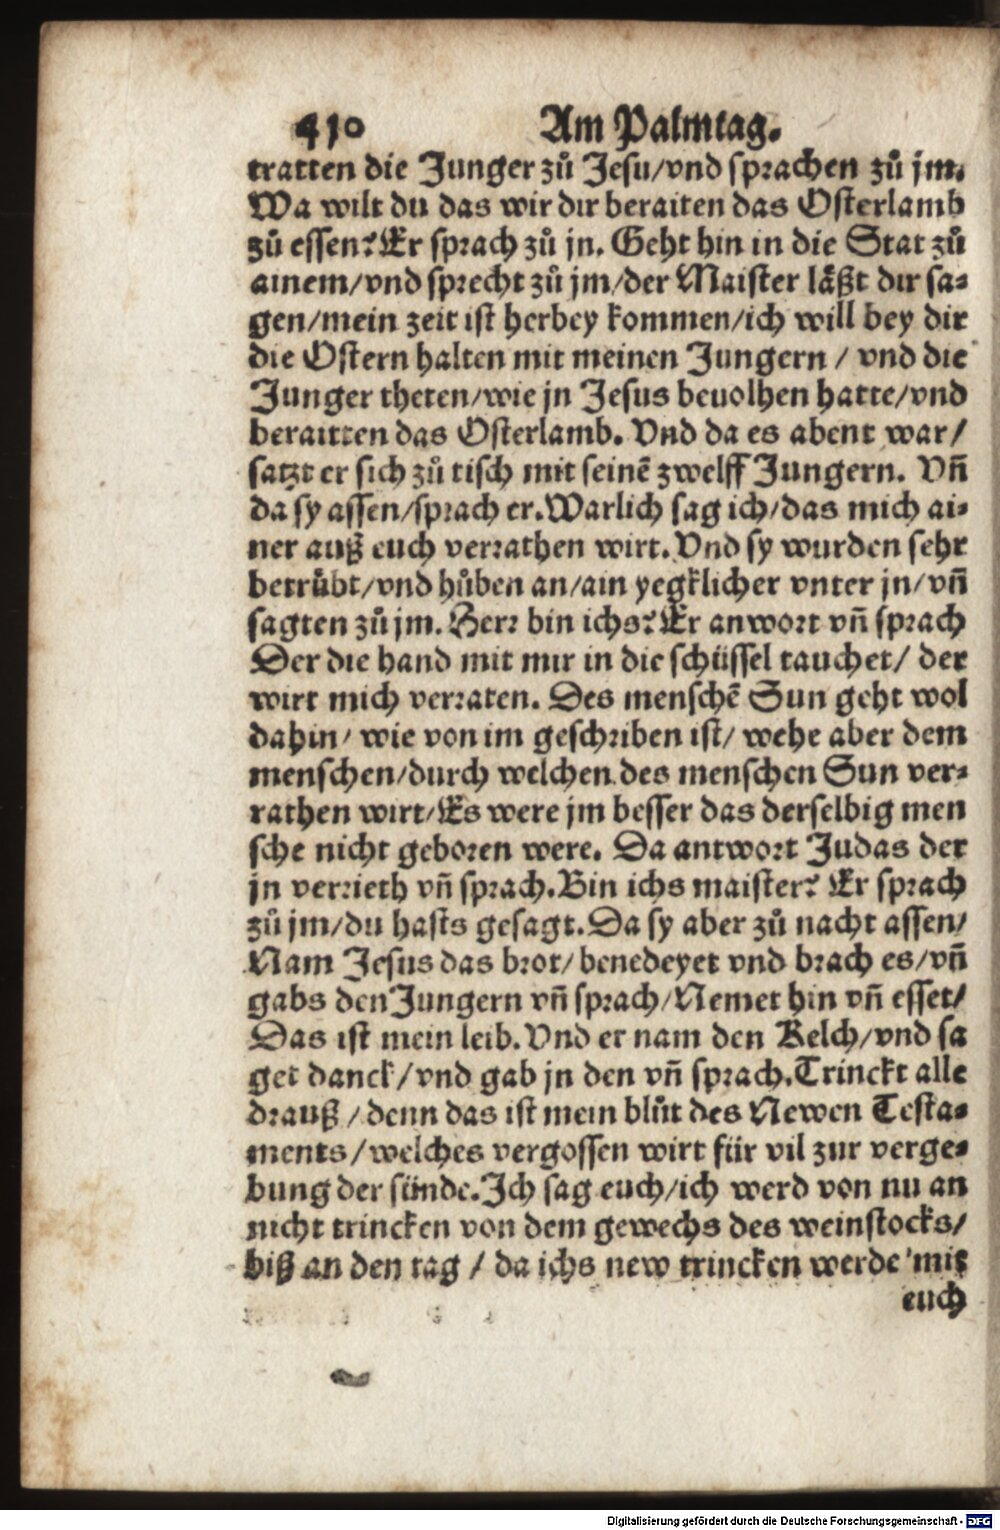 410 Am Palmtag.
tratten die Junger zů Jesu/vnd sprachen zů jm.
Wa wilt du das wir dir beraiten das Osterlamb
zů essen? Er sprach zů jn. Geht hin in die Stat zů
ainem/vnd sprecht zů jm/der Maister läßt dir sa-
gen/mein zeit ist herbey kommen/ich will bey dir
die Ostern halten mit meinen Jungern / vnd die
Junger theten/wie jn Jesus beuolhen hatte/vnd
beraitten das Osterlamb. Vnd da es abent war/
satzt er sich zů tisch mit seinē zwelff Jungern. Vñ
da sy assen/sprach er. Warlich sag ich/das mich ai-
ner auß euch verrathen wirt. Vnd sy wurden sehr
betrůbt/vnd hůben an/ain yegklicher vnter jn/vñ
sagten zů jm. Herr bin ichs? Er anwort vñ sprach
Der die hand mit mir in die schüssel tauchet/ der
wirt mich verraten. Des menschē Sun geht wol
dahin/ wie von im geschriben ist/ wehe aber dem
menschen/durch welchen des menschen Sun ver-
rathen wirt/Es were jm besser das derselbig men
sche nicht geboren were. Da antwort Judas der
jn verrieth vñ sprach. Bin ichs maister? Er sprach
zů jm/du hasts gesagt. Da sy aber zů nacht assen/
Nam Jesus das brot/ benedeyet vnd brach es/vñ
gabs den Jungern vñ sprach/Nemet hin vñ esset/
Das ist mein leib. Vnd er nam den Kelch/vnd sa
get danck/vnd gab jn den vñ sprach. Trinckt alle
drauß/denn das ist mein blůt des Newen Testa-
ments/welches vergossen wirt für vil zur verge-
bung der sünde. Ich sag euch/ich werd von nu an
nicht trincken von dem gewechs des weinstocks/
biß an den tag / da ichs new trincken werde mit
euch
Digitalisierung gefördert durch die Deutsche Forschungsgemeinschaft - DFG